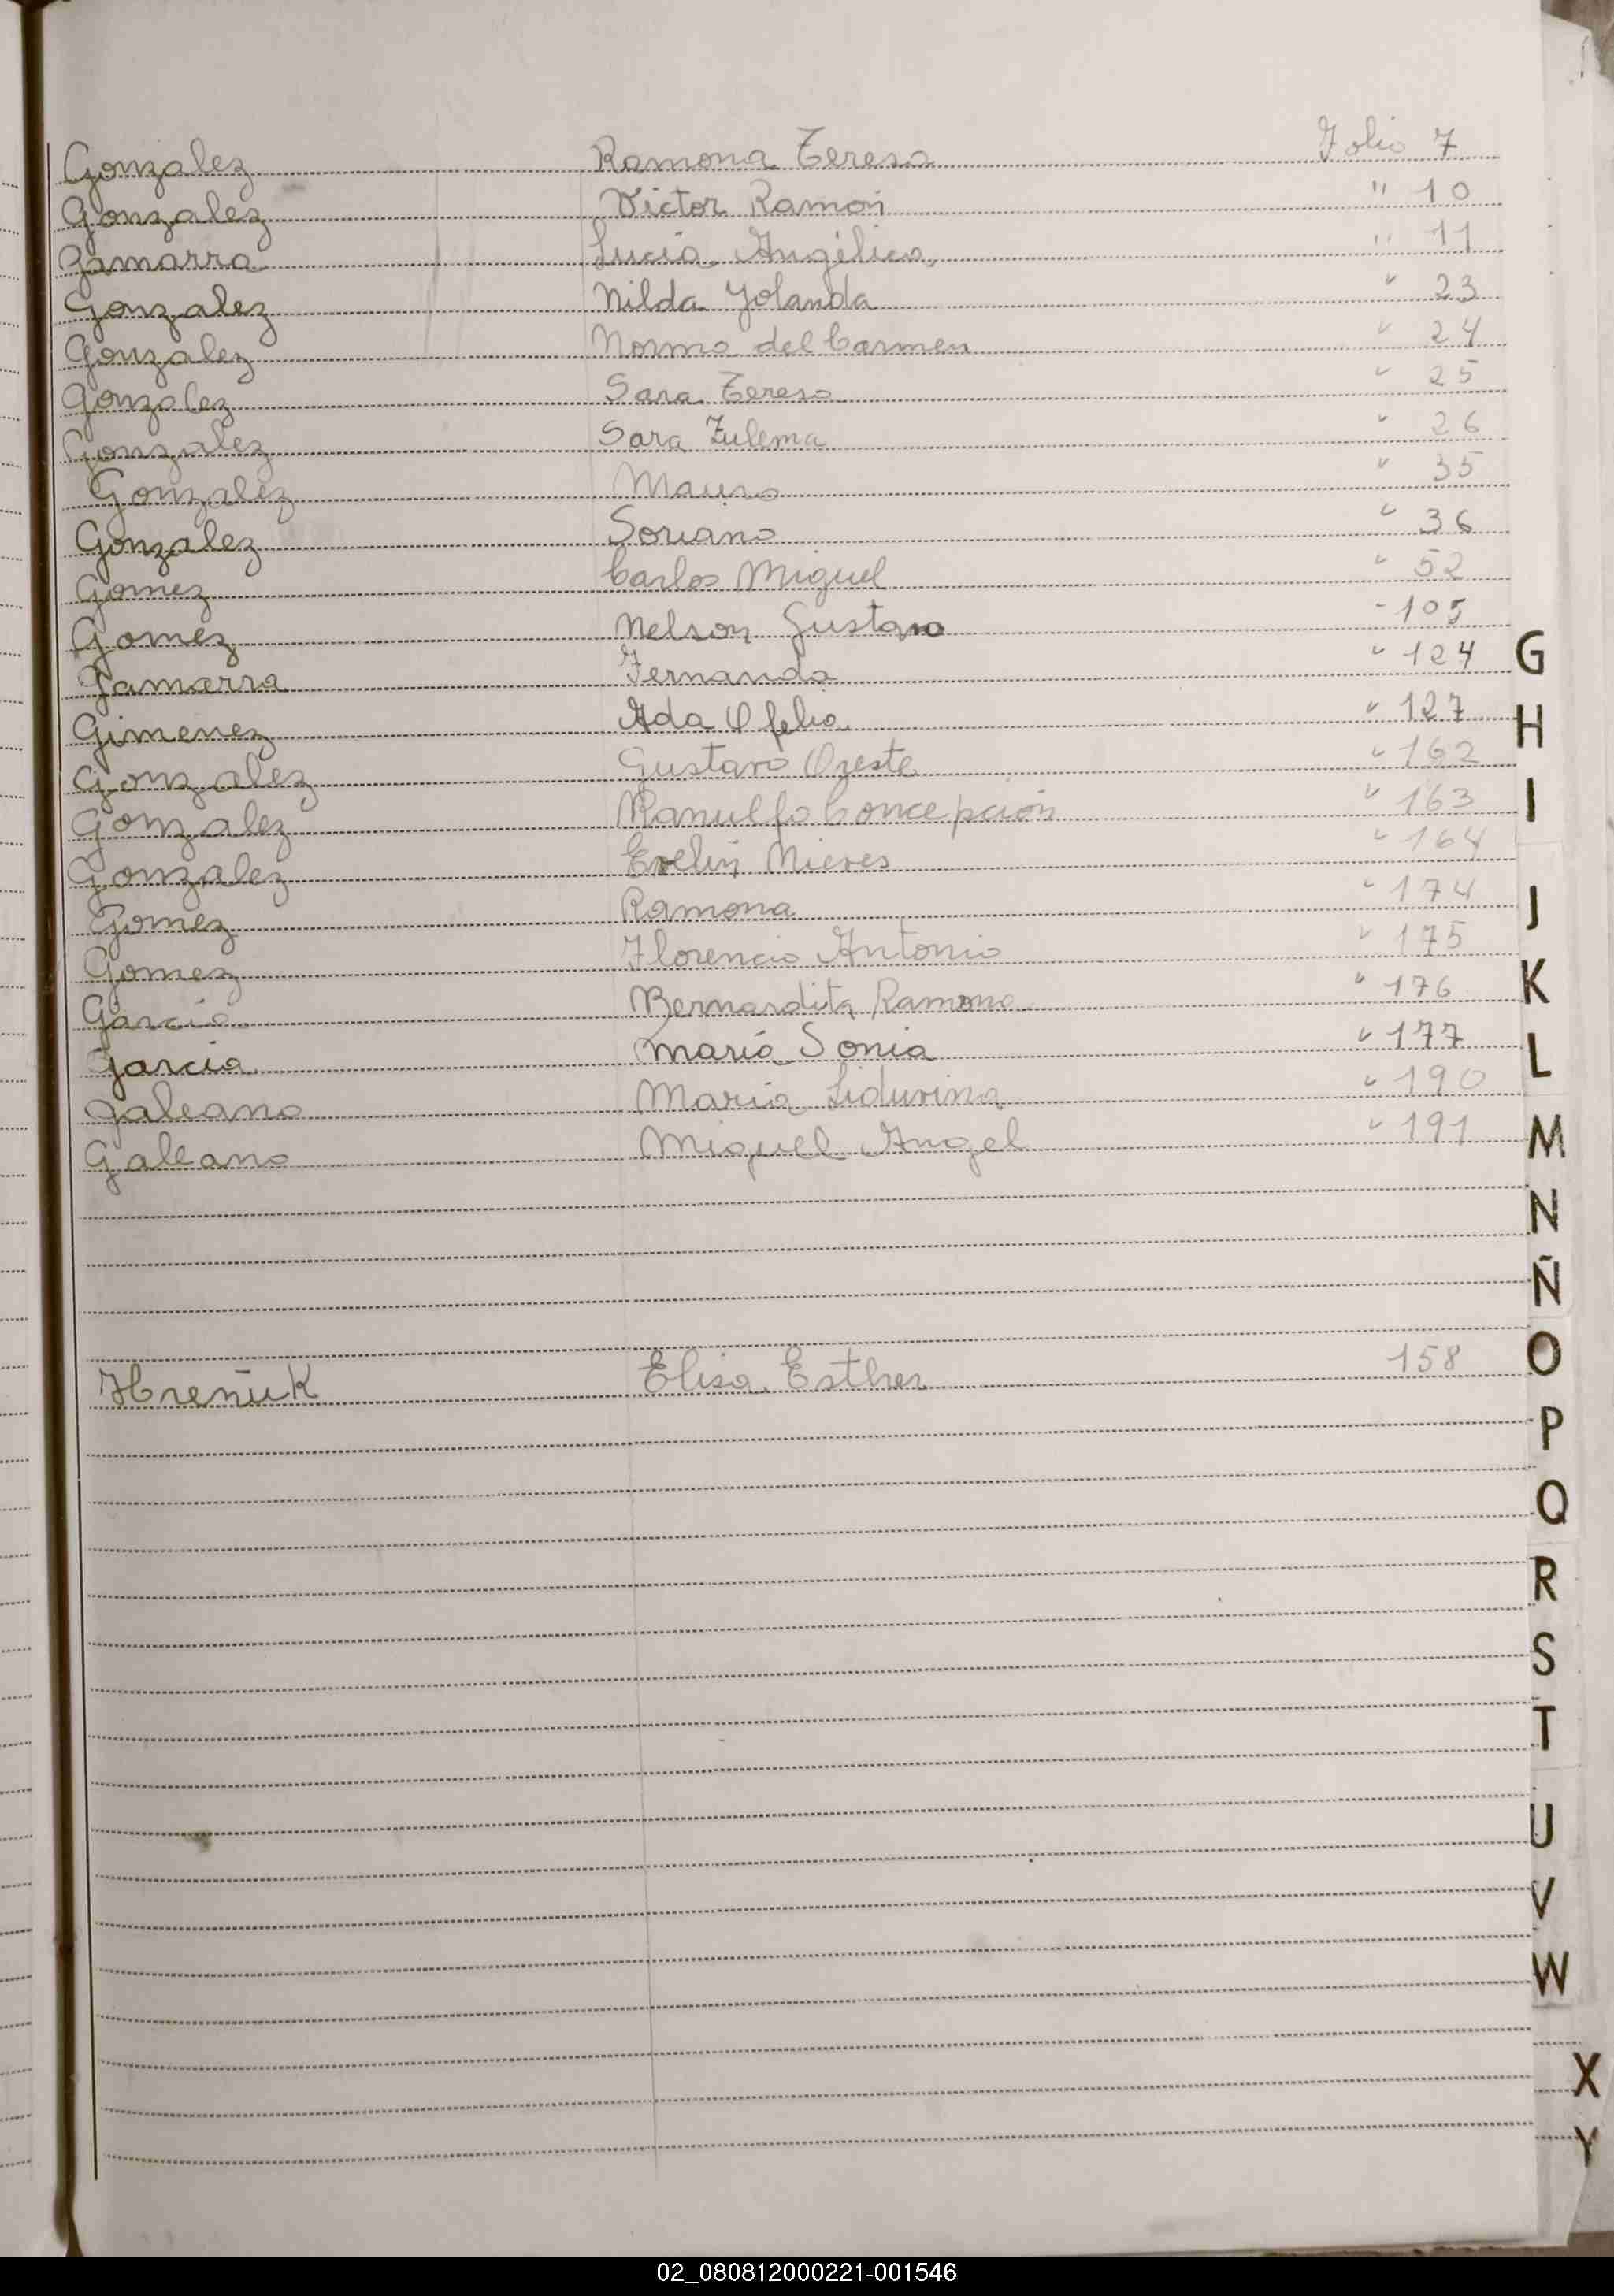 Gonzalez Ramona Teresa Folio 7
Gonzalez Victor Ramón " 10
Gamarra Lucia Angélica " 11
Gonzalez Nilda Yolanda " 23
Gonzalez Norma del Carmen " 24
Gonzalez Sara Teresa " 25
Gonzalez Sara Zulema " 26
Gonzalez Mauro " 35
Gonzalez Soriano " 36
Gomez Carlos Miguel " 52
Gomez Nelson Gustavo " 105
Gamarra Fernanda " 124
Gimenez Ada Ofelia " 127
Gonzalez Gustavo Oreste " 162
Gonzalez Ranulfo Concepción " 163
Gonzalez Evelin Nieves " 164
Gomez Ramona " 174
Gomez Florencio Antonio " 175
Garcia Bernardita Ramona " 176
Garcia Maria Sonia " 177
Galeano Maria Liduvina " 190
Galeano Miguel Angel " 191
Hreñuk Elisa Esther 158
G
H
I
J
K
L
M
N
Ñ
O
P
Q
R
S
T
U
V
W
X
Y
02_080812000221-001546